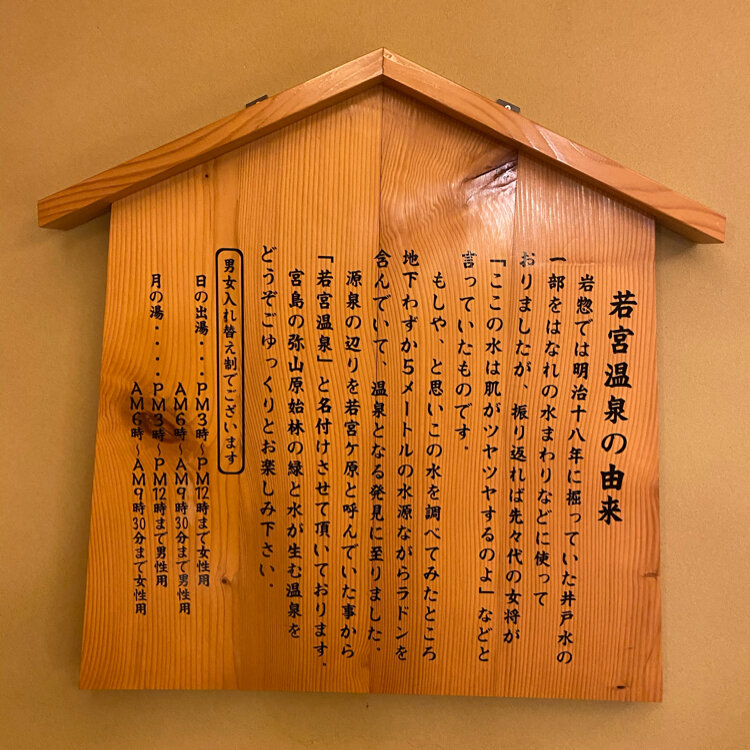 若宮温泉の由来
岩惣では明治十八年に掘っていた井戸水の
一部をはなれの水まわりなどに使って
おりましたが、振り返れば先々代の女将が
「ここの水は肌がツヤツヤするのよ」などと
言っていたものです。
もしや、と思いこの水を調べてみたところ
地下わずか5メートルの水源ながらラドンを
含んでいて、温泉となる発見に至りました。
源泉の辺りを若宮ケ原と呼んでいた事から
「若宮温泉」と名付けさせて頂いております。
宮島の弥山原始林の緑と水が生む温泉を
どうぞごゆっくりとお楽しみ下さい。
男女入れ替え制でございます
日の出湯・・・・PM3時〜PM12時まで女性用
AM6時〜AM9時30分まで男性用
月の湯・・・・PM3時〜PM12時まで男性用
AM6時〜AM9時30分まで女性用